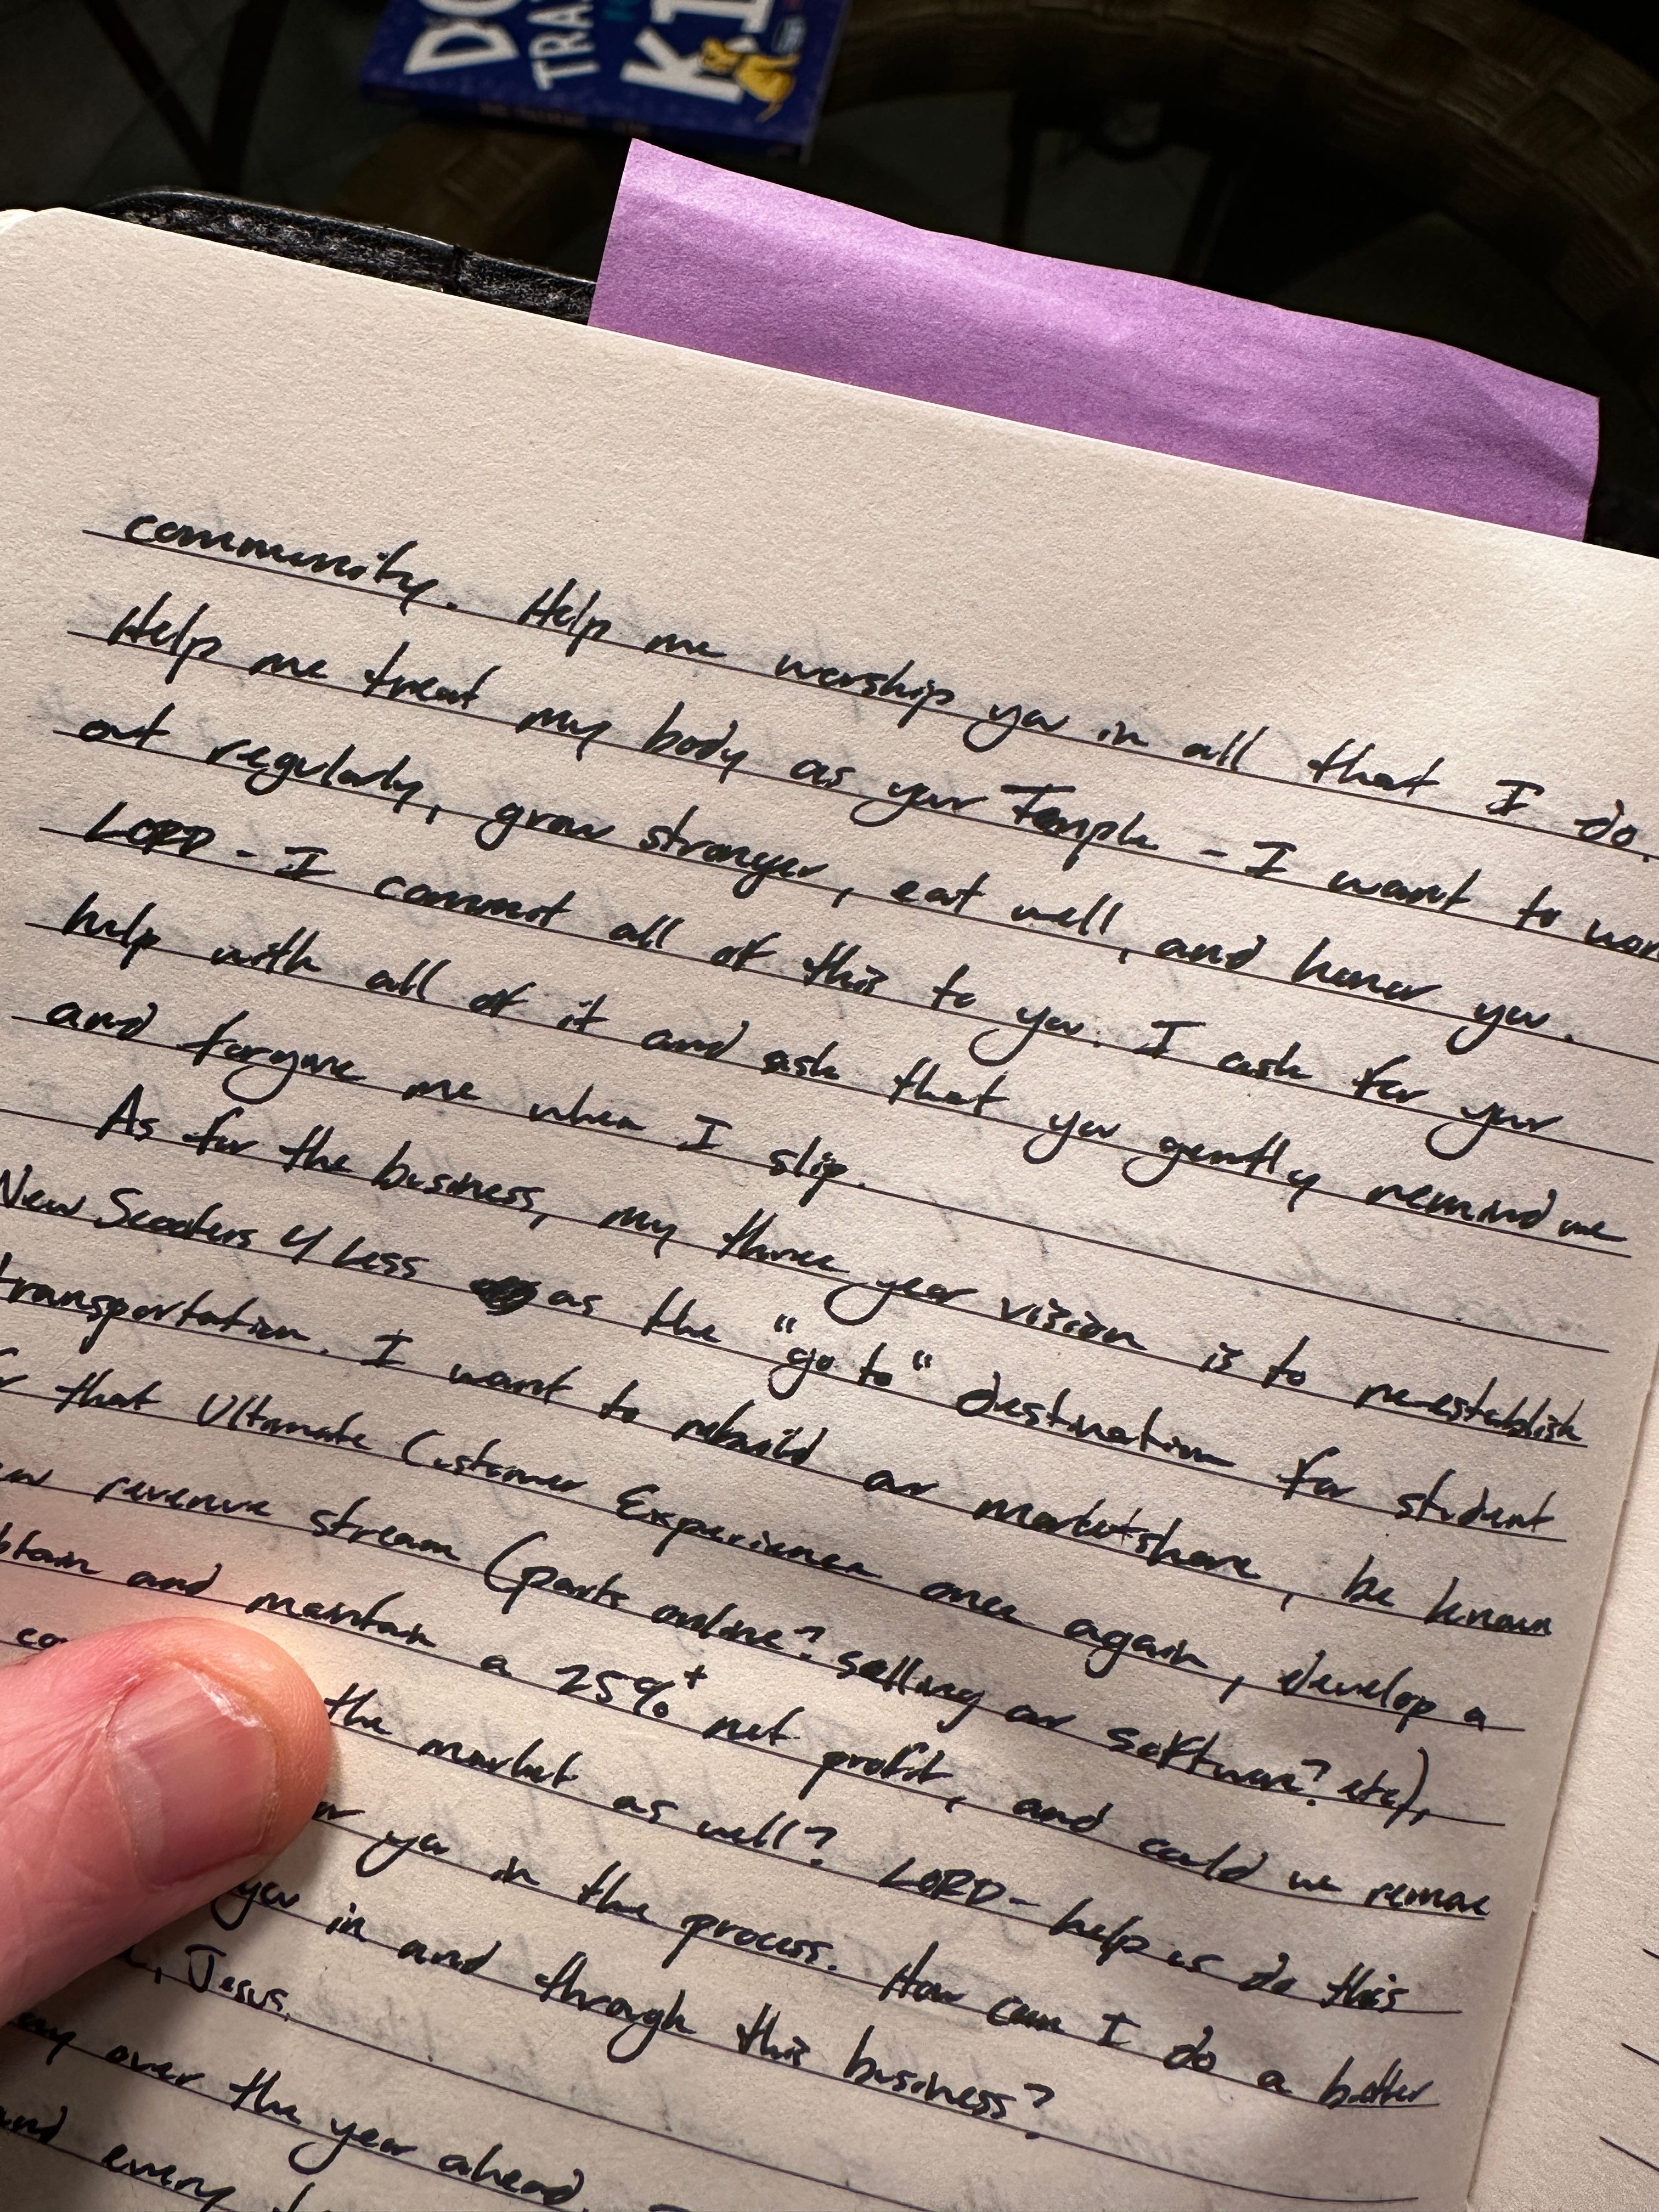 DO
TRA
K1
community. Help me worship you in all that I do.
Help me treat my body as your Temple - I want to wor
out regularly, grow stronger, eat well, and honor you.
LORD - I commit all of this to you. I ask for your
help with all of it and ask that you gently remind me
and forgive me when I slip.
As for the business, my three year vision is to re-establish
New Scooters 4 Less as the "go to" destination for student
transportation. I want to rebuild our marketshare, be known
r that Ultimate Customer Experience once again, develop a
ew revenue stream (parts online? selling our software? etc),
btain and maintain a 25%+ net profit, and could we remove
co the market as well? LORD - help us do this
or you in the process. How can I do a better
you in and through this business?
, Jesus.
ay over the year ahead.
and every